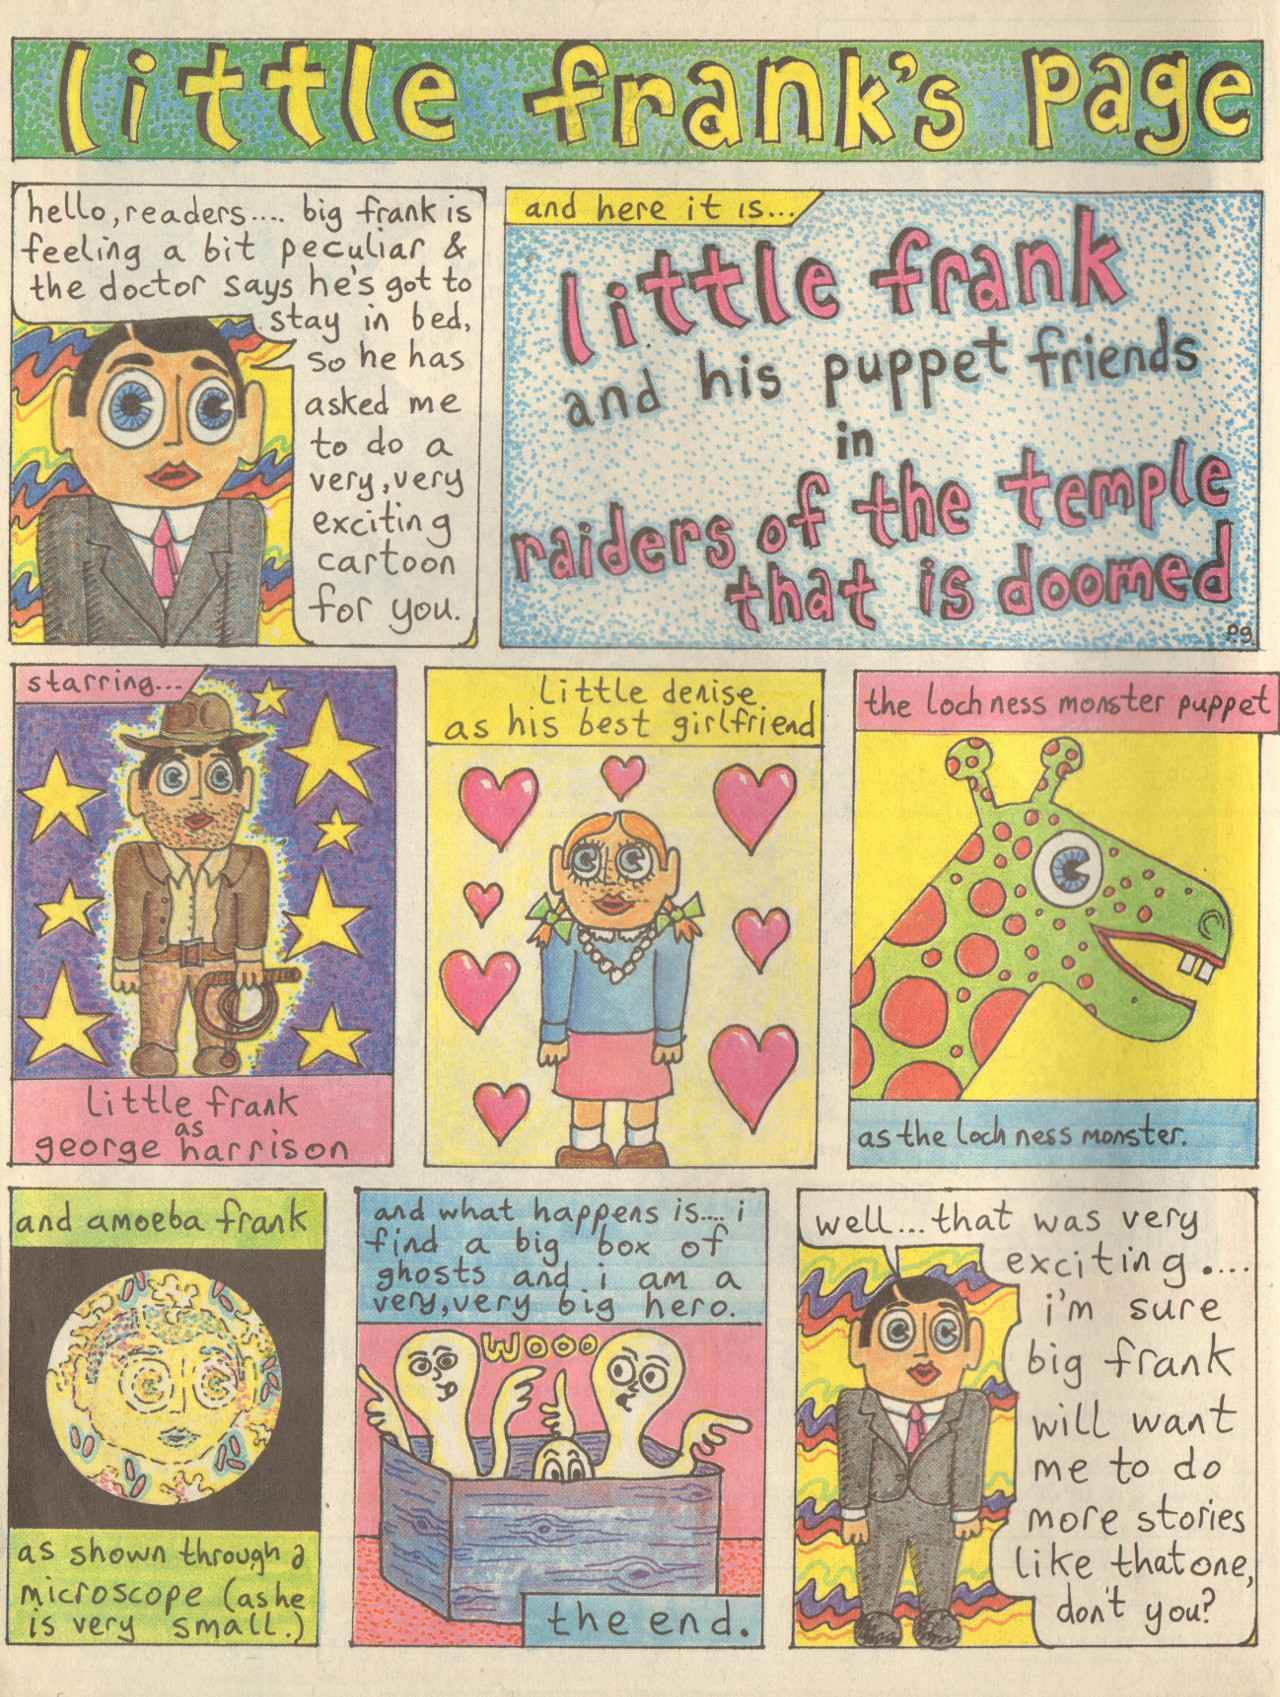 little frank's page
hello, readers.... big frank is
feeling a bit peculiar &
the doctor says he's got to
stay in bed,
so he has
asked me
to do a
very, very
exciting
cartoon
for you.
and here it is...
little frank
and his puppet friends
in
raiders of the temple
that is doomed
pg.
starring...
little frank
as
george harrison
little denise
as his best girlfriend
the loch ness monster puppet
as the loch ness monster.
and amoeba frank
as shown through a
microscope (as he
is very small.)
and what happens is.... i
find a big box of
ghosts and i am a
very, very big hero.
Wooo
the end.
well... that was very
exciting....
i'm sure
big frank
will want
me to do
more stories
like that one,
don't you?